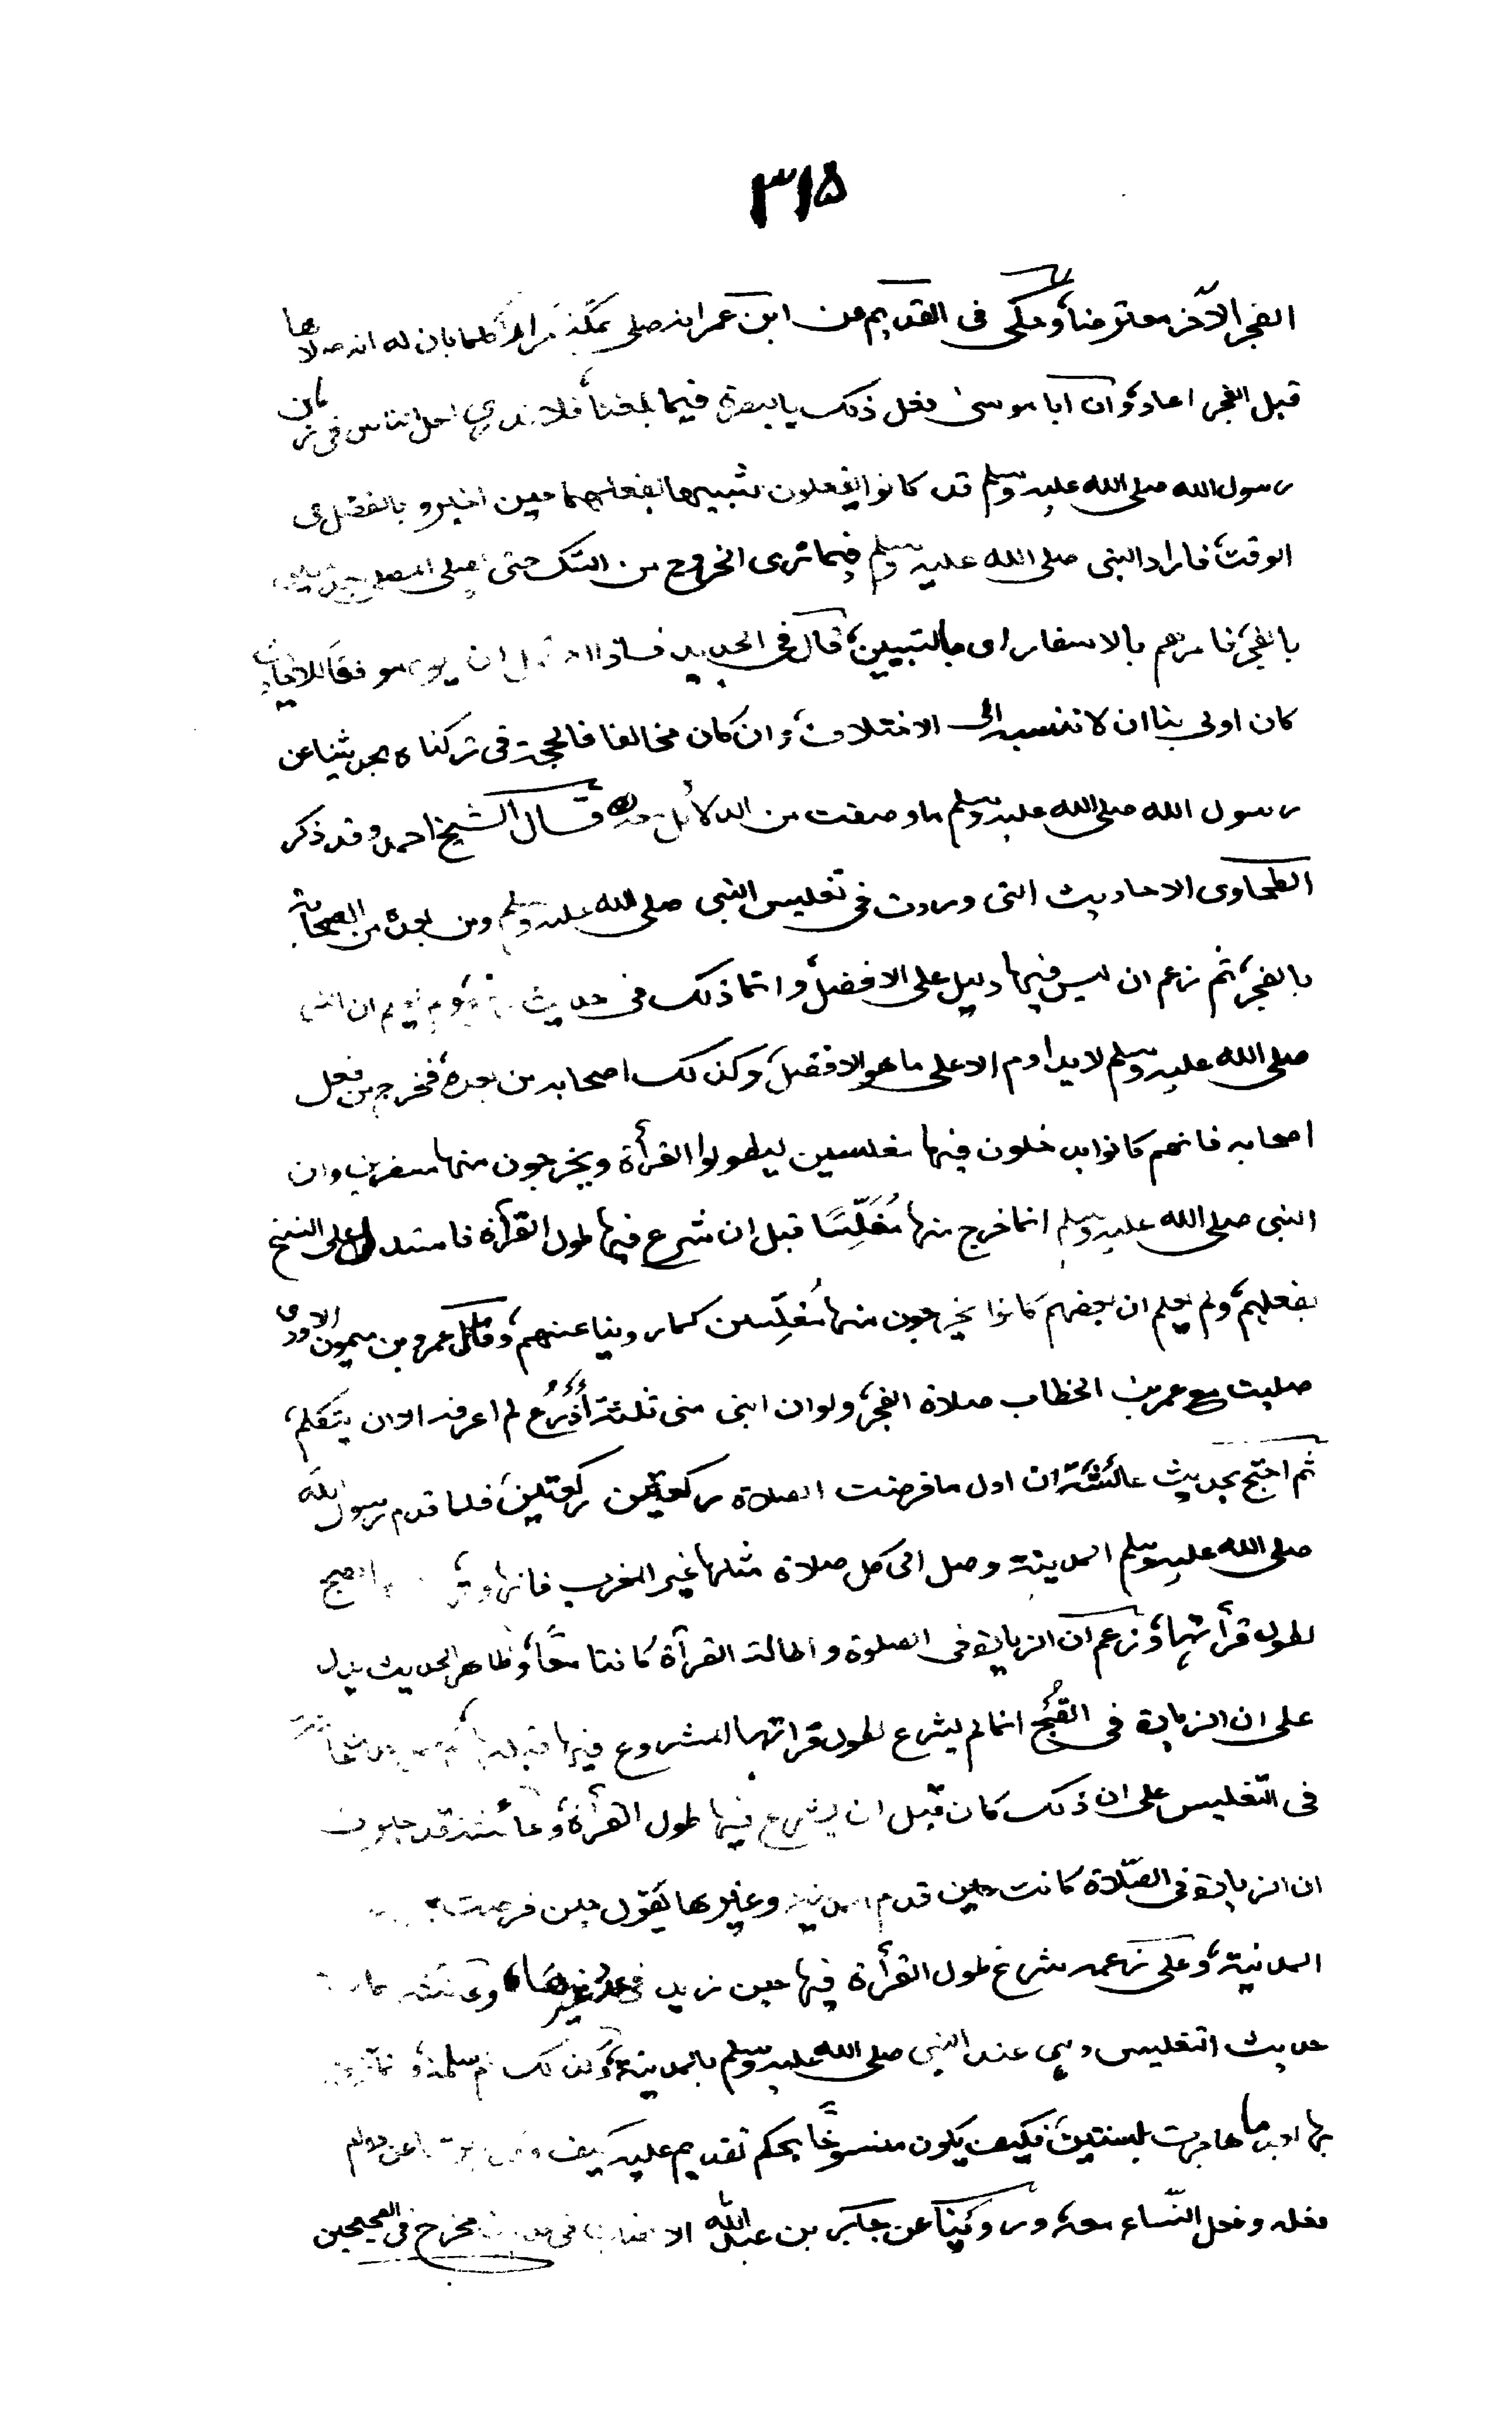 ٣١٥
الفجر الآخر معترضا، وحكى فى القديم عن ابن عمر انه صلى بمكة مرارا كلما بان له انه صلاها
قبل الفجر اعاد، وان ابا موسى فعل ذلك بالبصرة فيما بلغنا، فلا ندرى احل الناس فى زمان
رسول الله صلى الله عليه وسلم قد كانوا يفعلون شبيها بفعلهما حين اخبروا بالفضل فى
الوقت، فاراد النبى صلى الله عليه وسلم فيما نرى الخروج من الشك حتى يصلى المصلى
بالفجر، فامرهم بالاسفار اى بالتبيين، قال فى الجديد فاذا احتمل ان يكون موافقا للاحاديث
كان اولى بنا ان لا ننسبه الى الاختلاف، وان كان مخالفا فالحجة فى تركناه بحديثنا عن
رسول الله صلى الله عليه وسلم ما وصفت من الدلائل معه قال الشيخ احمد وقد ذكر
الطحاوى الاحاديث التى وردت فى تغليس النبى صلى الله عليه وسلم ومن بعده من الصحابة
بالفجر، ثم زعم ان ليس فيها دليل على الافضل، وانما ذلك فى حديث ولم يعلم ان النبى
صلى الله عليه وسلم لا يداوم الا على ما هو الافضل، وكذلك اصحابه من بعده، فخرج من فعل
اصحابه فانهم كانوا يدخلون فيها مغلسين ليطولوا القرأة ويخرجون منها مسفرين وان
النبى صلى الله عليه وسلم انما خرج منها مُغَلِّسًا قبل ان شرع فيها طول القرأة فاستدل على النسخ
بفعلهم، ولم يعلم ان بعضهم كانوا يخرجون منها مُغلِّسين كما روينا عنهم، وقال عمرو بن ميمون الاودى
صليت مع عمر بن الخطاب صلاة الفجر، ولو ان ابنى منى ثلثة أذرع لم اعرفه الا ان يتكلم،
ثم احتج بحديث عائشة ان اول ما فرضت الصلاة ركعتين ركعتين، فلما قدم رسول الله
صلى الله عليه وسلم المدينة وصل الى كل صلاة مثلها غير المغرب فانها وتر الصبح
لطول قرأتها، وزعم ان الزيادة فى الصلوة واطالة القرأة كانتا معًا، وظاهر الحديث يدل
على ان الزيادة فى الصُّبح انما لم يشرع لطول قراتها المشروع فيها قبلها
فى التغليس على ان ذلك كان قبل ان يشرع فيها طول القرأة، وعائشة قد
ان الزيادة فى الصّلاة كانت حين قدم المدينة وغيرها يقول حين فرضت
المدنية، وعلى زعمه شرع طول القرأة فيها حين زيد فى عدد غيرها، وعائشة
حديث التغليس وهى عند النبى صلى الله عليه وسلم بالمدينة، وكذلك ام سلمة،
بها بعد ما هاجرت بسنتين، فكيف يكون منسوخًا بحكم تقديم عليه كيف
فعله وفعل النّساء معه، وروّينا عن جابر بن عبد الله الانصارى فى مخرج فى الصحيحين